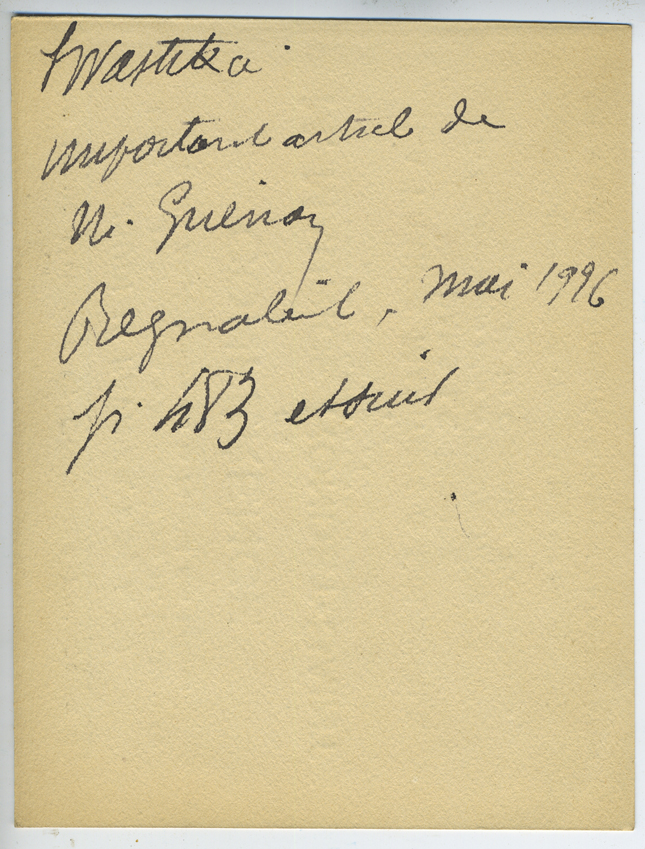 Swastika
important article de
M. Guénon
Regnabit, Mai 1926
p. 483 et suiv